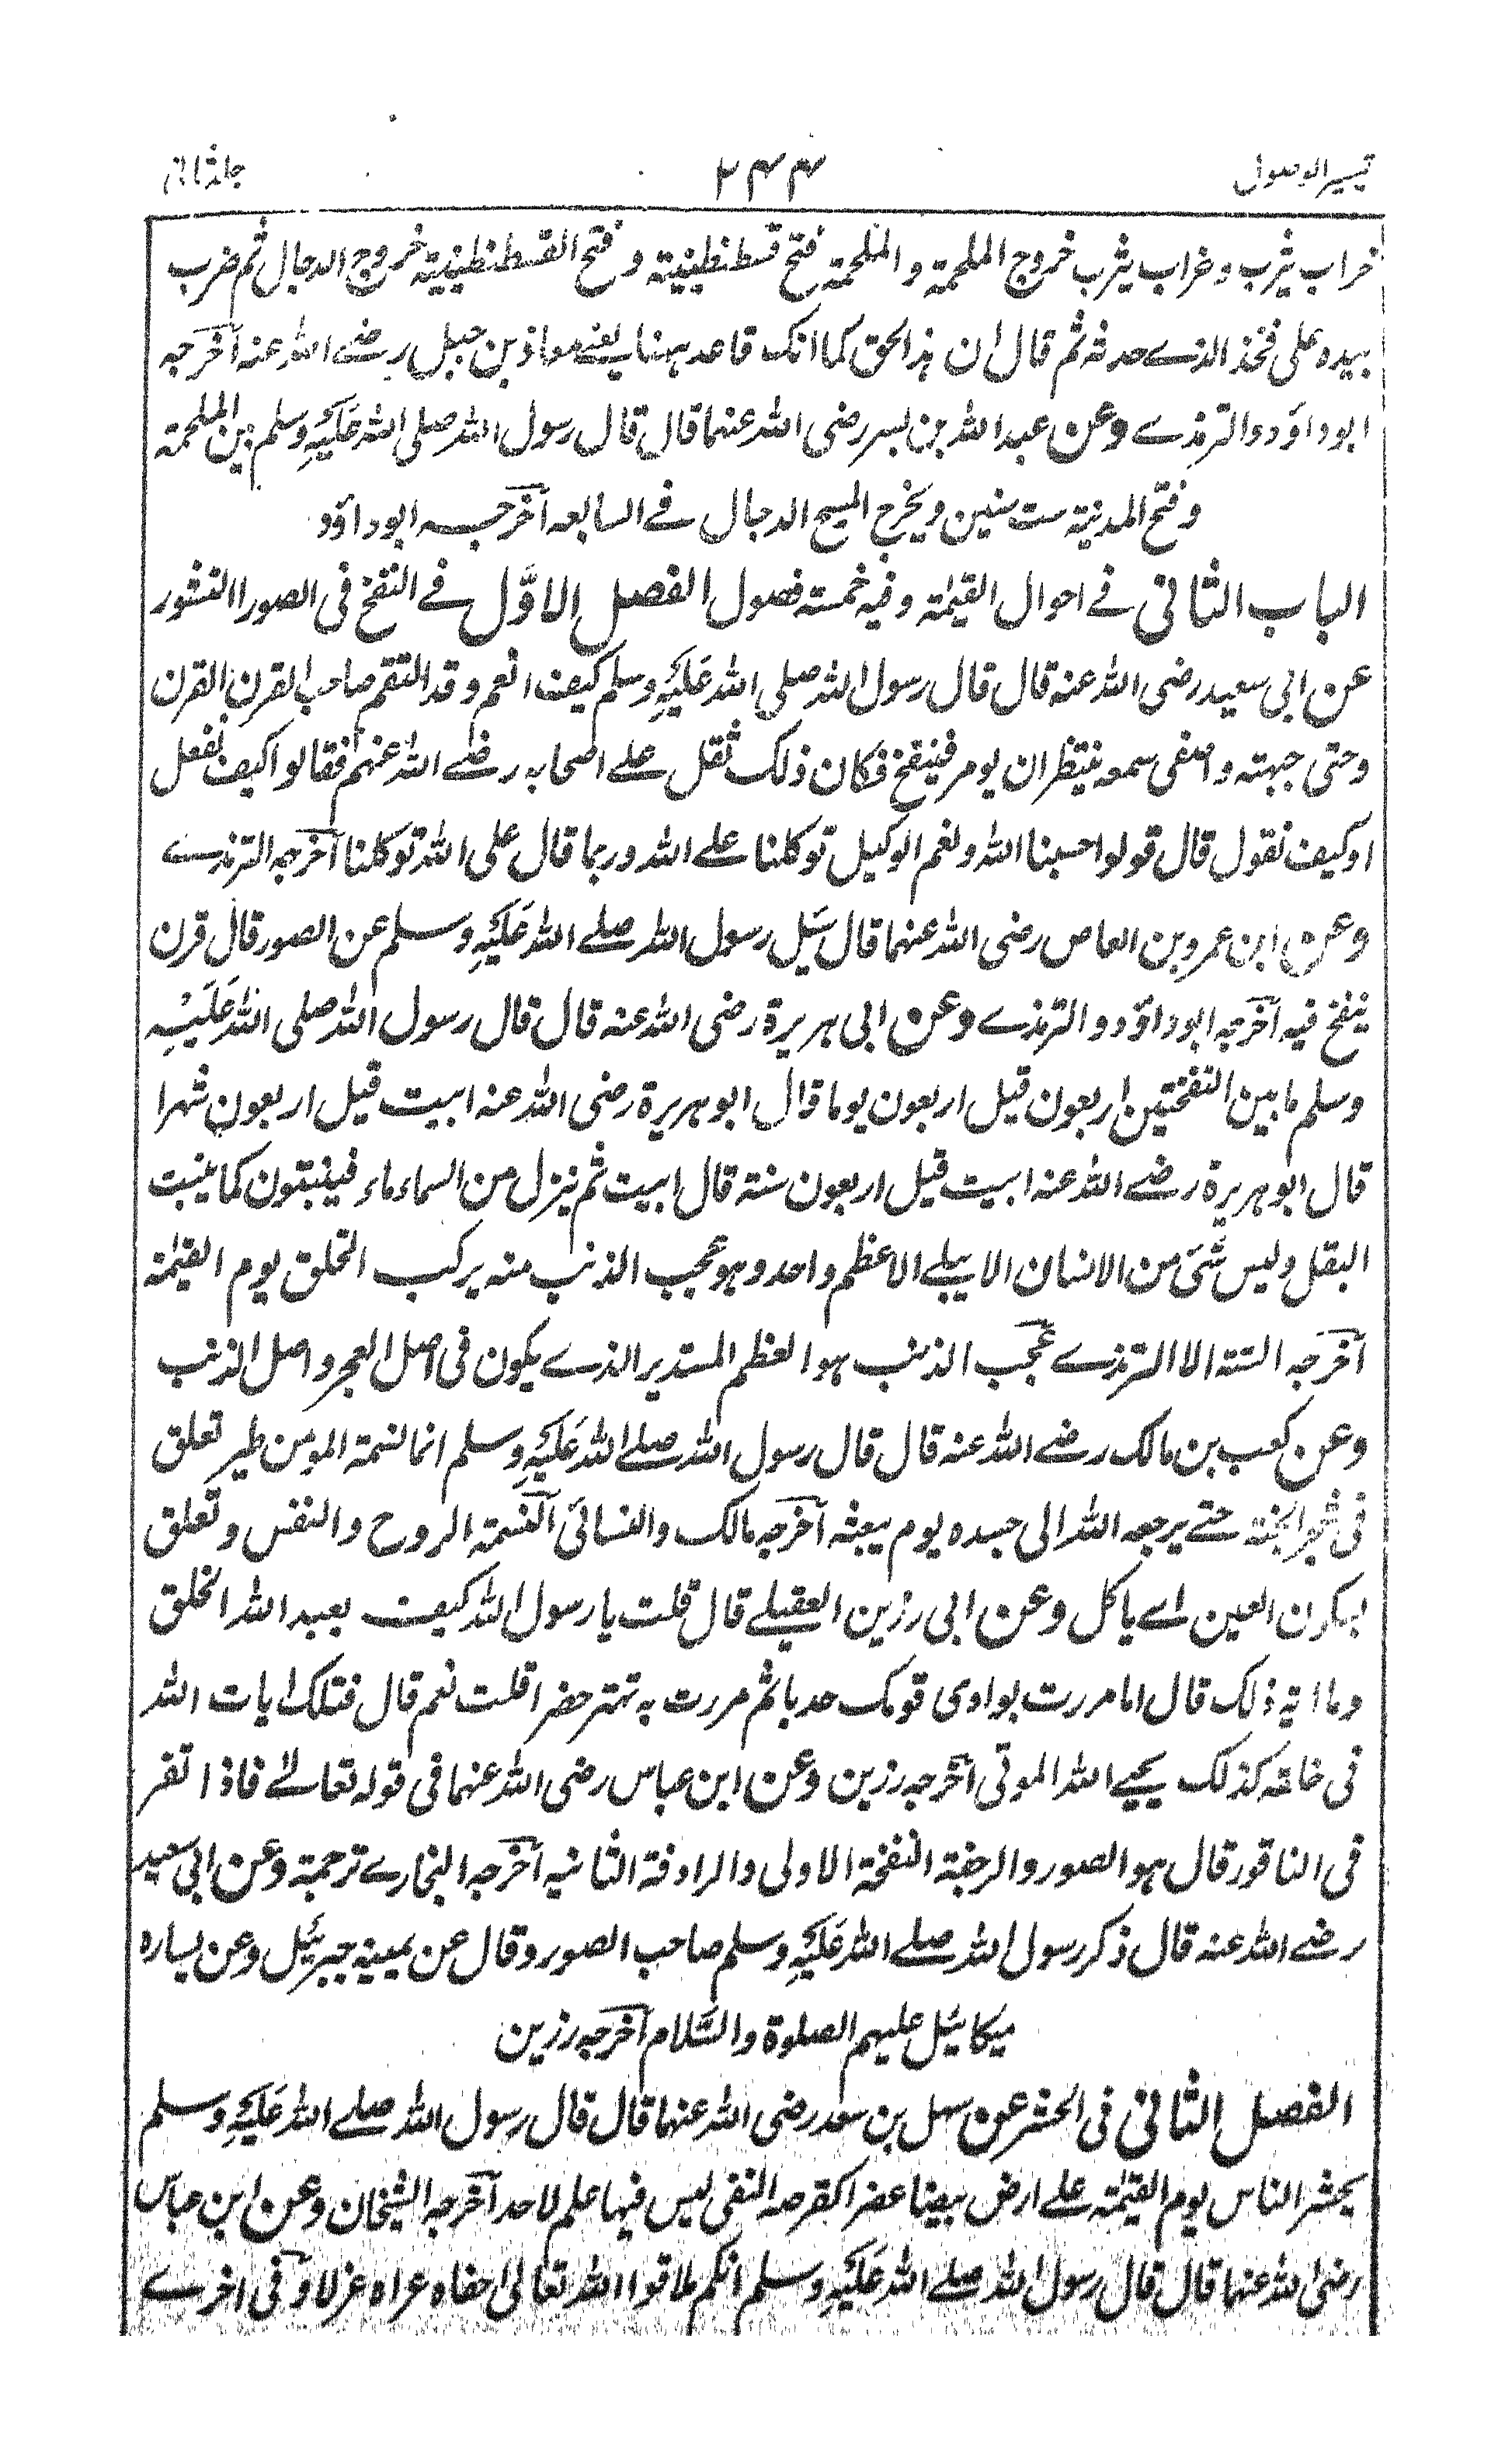 تيسير الوصول
۲۴۴
جلد ثانی
خراب يثرب وخراب يثرب خروج الملحمة والملحمة فتح قسطنطينية وفتح القسطنطينية خروج الدجال ثم ضرب
بيده على فخذ الذے حدثه ثم قال ان ہذا لحق كما انك قاعد ہهنا يعنے معاذ بن جبل رضے الله عنه آخرجه
ابوداؤد والترمذے وعن عبد الله بن بسر رضى الله عنهما قال قال رسول الله صلى الله عَلَيْهِ وسلم بين الملحمة
وفتح المدينة ست سنين ويخرج المسيح الدجال فے السابعه آخرجه ابوداؤد
الباب الثانى فے احوال القيٰمة وفيه خمسة فصول الفصل الاوَّل فے النفخ فى الصور االنشور
عن ابى سعيد رضى الله عنه قال قال رسول الله صلى الله عَلَيْهِ وسلم كيف انعم وقد التقم صاحب القرن القرن
وحتى جبهته واصغى سمعه ينتظر ان يومر فينفخ فكان ذلك ثقل علے اصحابه رضے الله عنهم فقالوا كيف نفعل
او كيف نقول قال قولوا حسبنا الله ونعم الوكيل توكلنا علے الله وربما قال على الله توكلنا آخرجه الترمذے
وعن ابن عمرو بن العاص رضى الله عنهما قال سَئِل رسول الله صلے الله عَلَيْهِ وسلم عن الصور قال قرن
ينفخ فيه آخرجه ابوداؤد والترمذے وعن ابى ہريرة رضى الله عنه قال قال رسول الله صلى الله عَلَيْهِ
وسلم ما بين النفختين اربعون قيل اربعون يوما قال ابو ہريرة رضى الله عنه ابيت قيل اربعون شهرا
قال ابو ہريرة رضے الله عنه ابيت قيل اربعون سنة قال ابيت ثم ينزل من السماء ماء فينبتون كما ينبت
البقل وليس شَئ من الانسان الا يبلے الا عظم واحد وہو عجب الذنب منه يركب الخلق يوم القيٰمة
آخرجه الستة الا الترمذے عجب الذنب ہو العظم المستدير الذے يكون فى اصل العجز واصل الذنب
وعن كعب بن مالك رضے الله عنه قال قال رسول الله صلے الله عَلَيْهِ وسلم انما نسمة المومن طير تعلق
فى شجر الجنة حتے يرجعه الله الى جسده يوم يبعثه آخرجه مالك والنسائى النسمة الروح والنفس وتعلق
بسكون العين اے ياكل وعن ابى رزين العقيلے قال قلت يا رسول الله كيف يعيد الله الخلق
وما اٰية ذلك قال اما مررت بوادى قومك جدبا ثم مررت به تهتز خضرا قلت نعم قال فتلك ايات الله
فى خلقه كذلك يحيے الله الموتى آخرجه رزين وعن ابن عباس رضى الله عنهما فى قوله تعالےٰ فاذا نقر
فى الناقور قال ہو الصور والرجفة النفخة الاولى والرادفة الثانيه آخرجه البخارے ترجمة وعن ابى سعيد
رضے الله عنه قال ذكر رسول الله صلے الله عَلَيْهِ وسلم صاحب الصور وقال عن يمينه جبرئيل وعن يساره
ميكائيل عليهم الصلوة والسَّلام آخرجه رزين
الفصل الثانى فى الحشر عن سهل بن سعد رضى الله عنهما قال قال رسول الله صلے الله عَلَيْهِ وسلم
يحشر الناس يوم القيٰمة علے ارض بيضا عفرا كقرصه النقى ليس فيها علم لاحد آخرجه الشيخان وعن ابن عباس
رضى الله عنهما قال قال رسول الله صلے الله عَلَيْهِ وسلم انكم ملاقوا الله تعالى حفاه عراه غزلا وفى اخرے